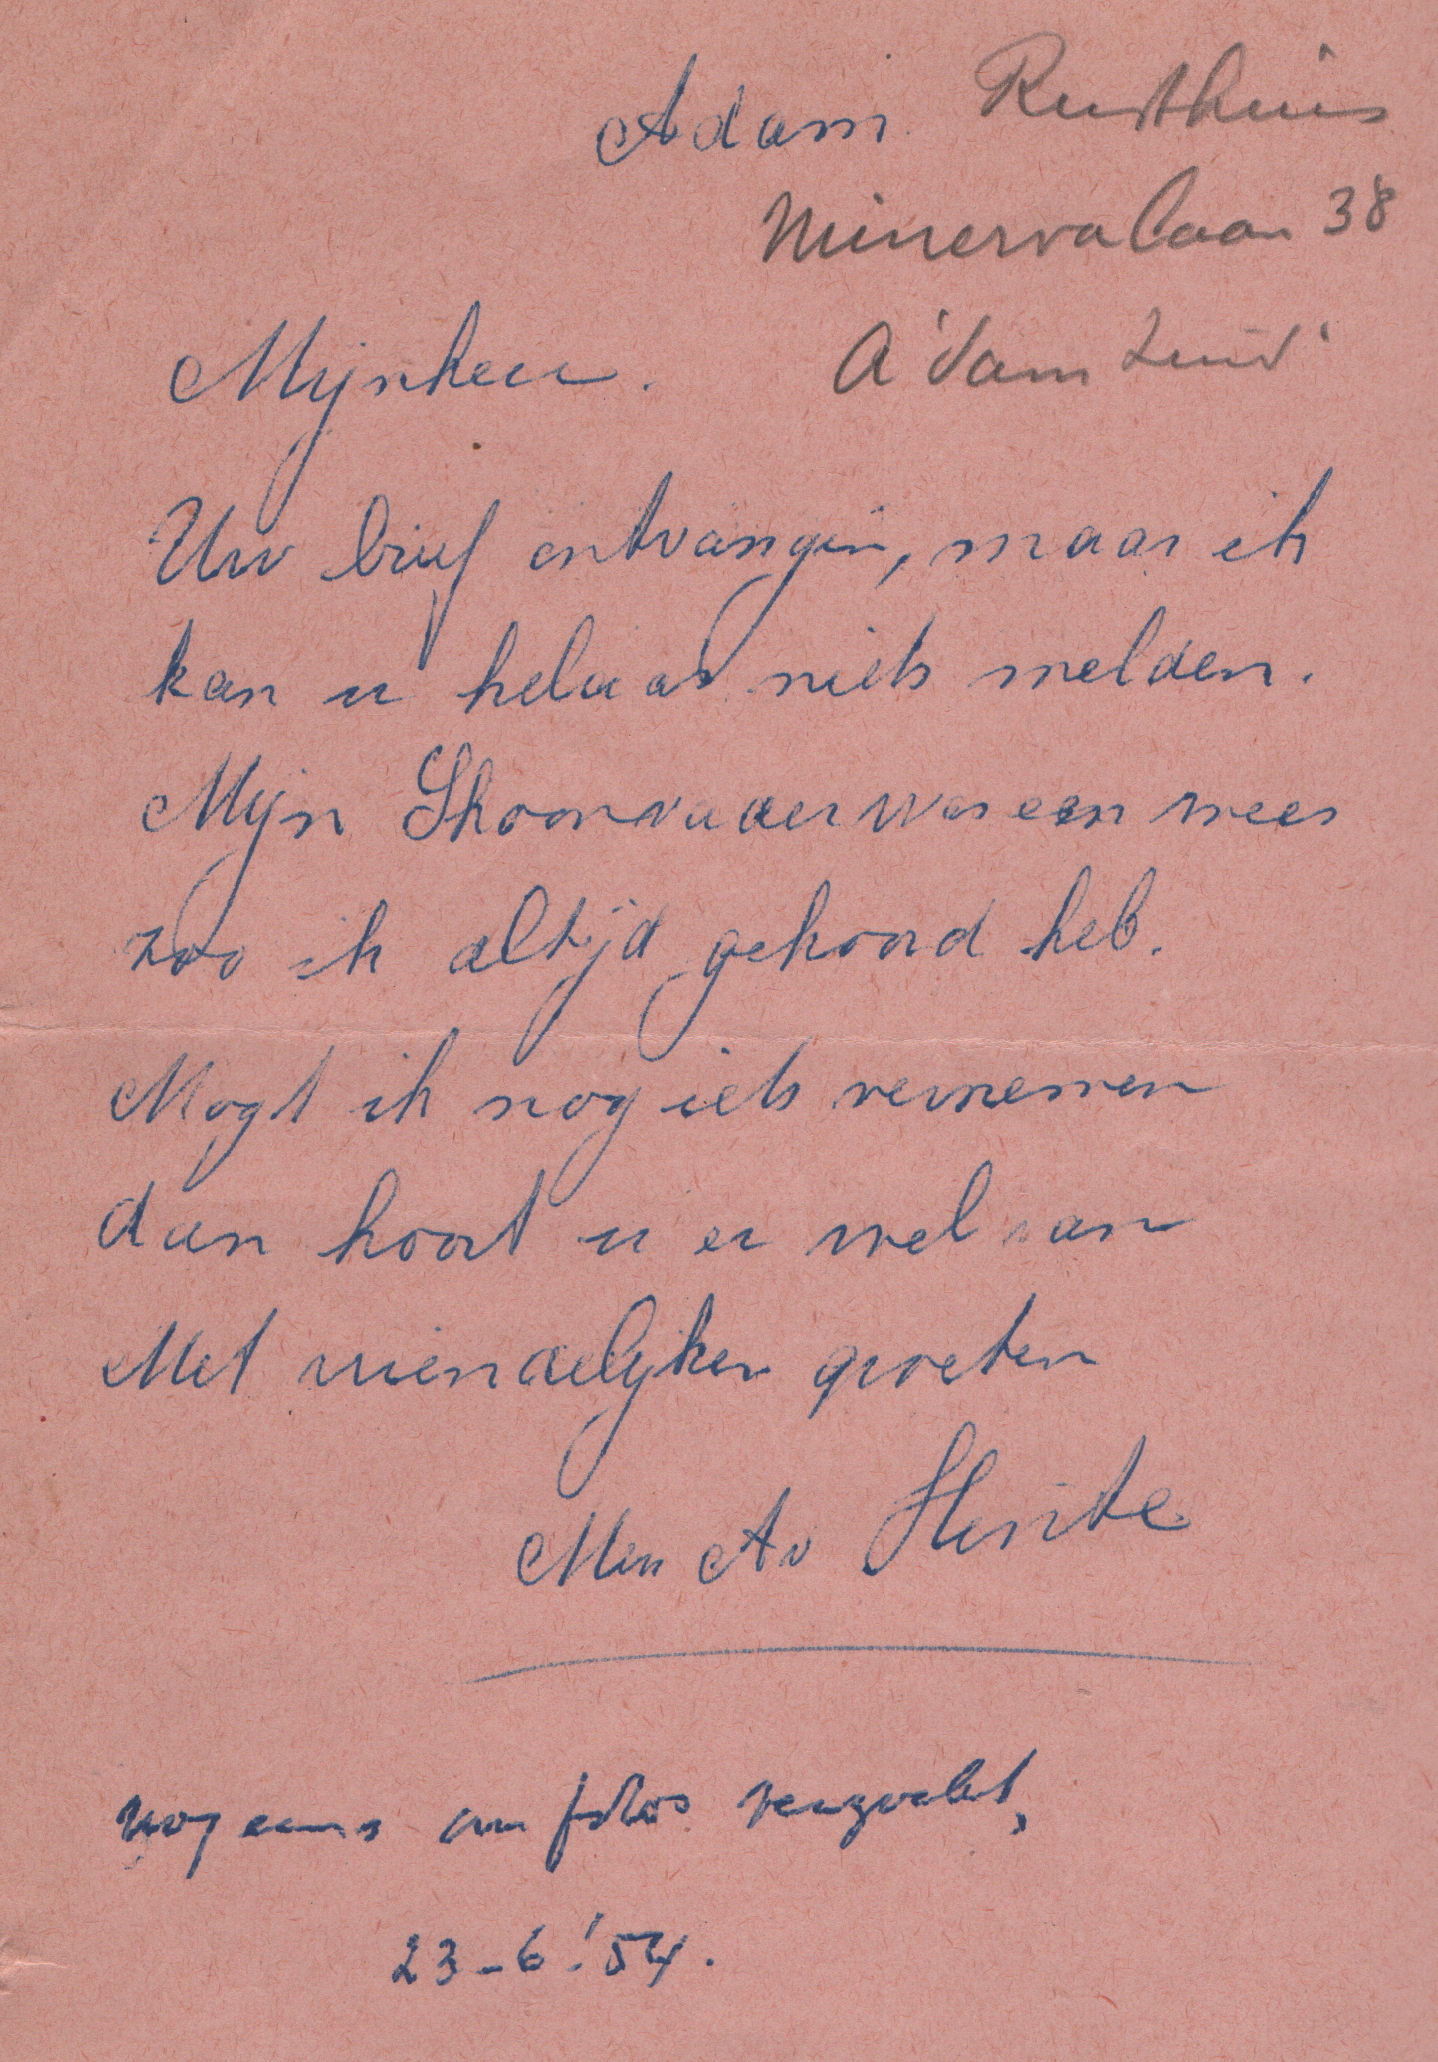 Adam Rusthuis
Minervalaan 38
A'dam Zuid
Mijnheer.
Uw brief ontvangen, maar ik
kan u helaas niets melden.
Mijn Shoonvader was een wees
zoo ik altijd gehoord heb.
Mogt ik nog iets vernemen
dan hoort u er wel van
Met vriendelijken groeten
Men Av
nog eens om fotos verzocht,
23-6-'54.